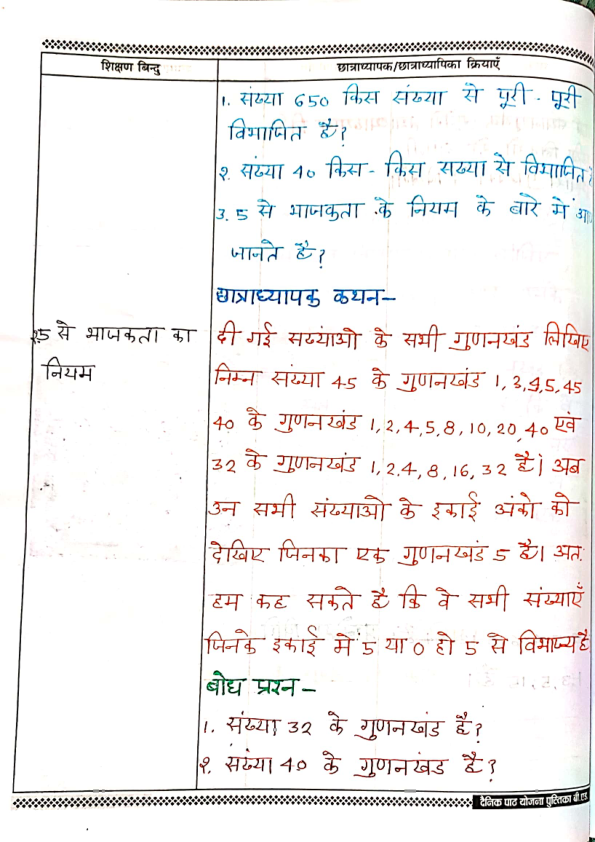 शिक्षण बिन्दु
छात्राध्यापक/छात्राध्यापिका क्रियाएँ
1. संख्या 650 किस संख्या से पूरी - पूरी
विभाजित है?
२. संख्या 40 किस - किस सख्या से विभाजित
3. 5 से भाजकता के नियम के बारे में
जानते है?
छात्राध्यापक कथन-
5 से भाजकता का
नियम
दी गई सख्याओ के सभी गुणनखंड लिखिए
निम्न संख्या 45 के गुणनखंड 1, 3, 5, 45
40 के गुणनखंड 1, 2, 4, 5, 8, 10, 20, 40 एवं
32 के गुणनखंड 1, 2, 4, 8, 16, 32 है। अब
उन सभी संख्याओ के इकाई अंको को
देखिए जिनका एक गुणनखंड 5 है। अत:
हम कह सकते है कि वे सभी संख्याएँ
जिनके इकाई में 5 या 0 हो 5 से विभाज्य है
बोध प्रश्न -
1. संख्या 32 के गुणनखंड है?
२. संख्या 40 के गुणनखंड है?
दैनिक पाठ योजना पुस्तिका बी.एड